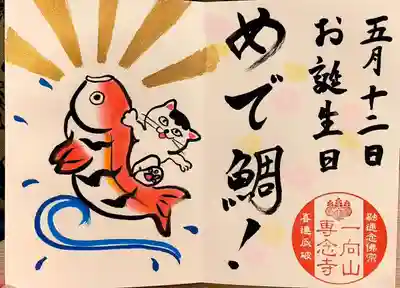 五月十二日
お誕生日
めで鯛!
融通念佛宗
一向山
専念寺
喜連成破